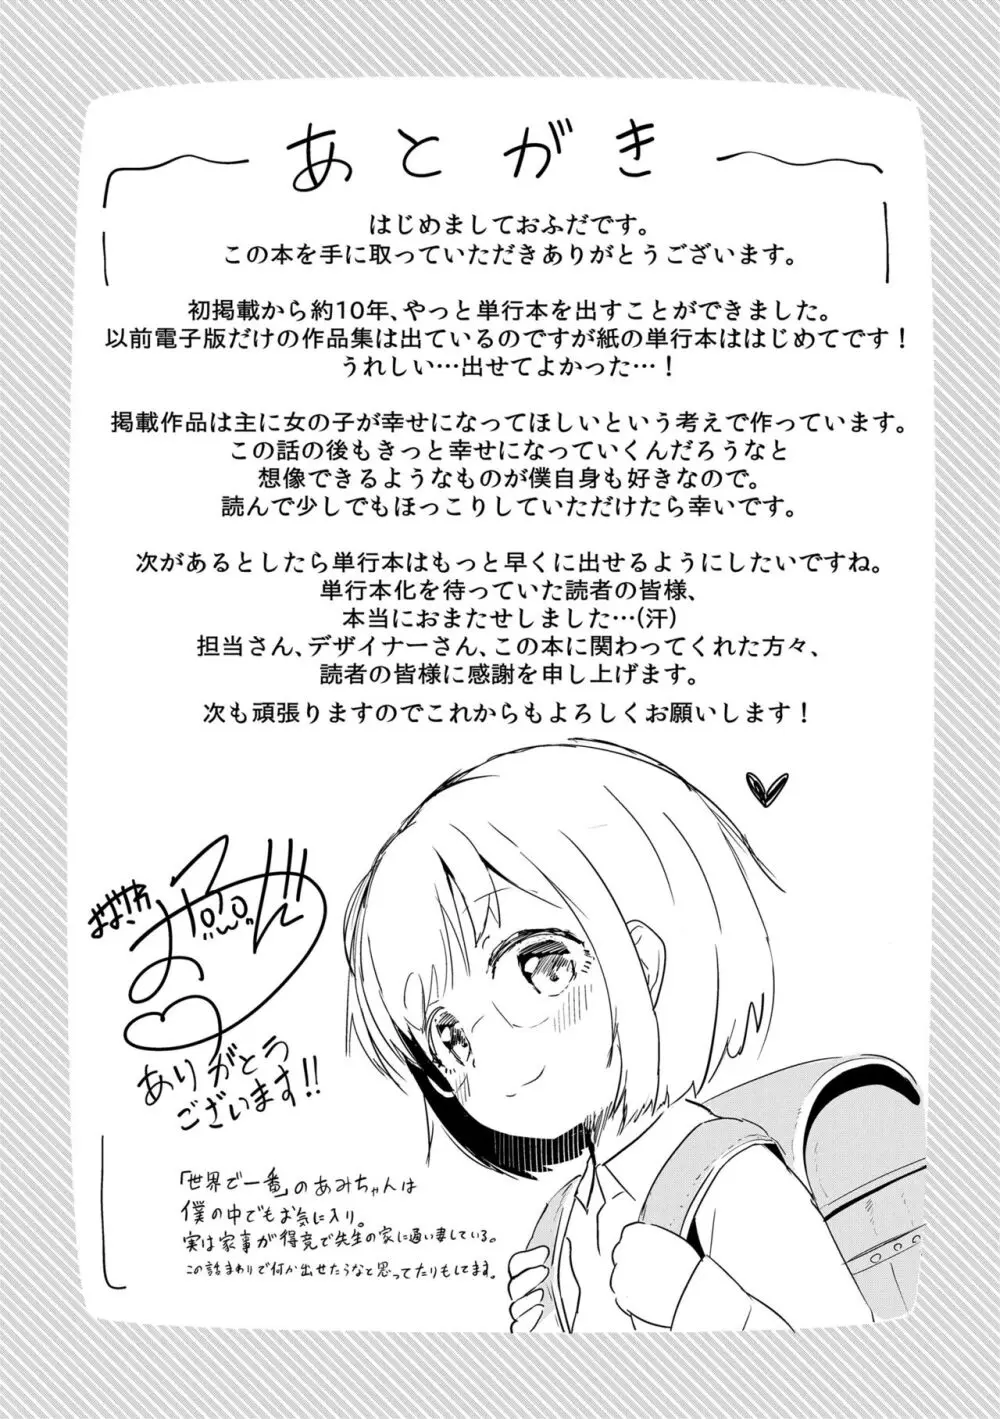 あとがき
はじめましておふだです。
この本を手に取っていただきありがとうございます。
初掲載から約10年、やっと単行本を出すことができました。
以前電子版だけの作品集は出ているのですが紙の単行本ははじめてです！
うれしい…出せてよかった…！
掲載作品は主に女の子が幸せになってほしいという考えで作っています。
この話の後もきっと幸せになっていくんだろうなと
想像できるようなものが僕自身も好きなので。
読んで少しでもほっこりしていただけたら幸いです。
次があるとしたら単行本はもっと早くに出せるようにしたいですね。
単行本化を待っていた読者の皆様、
本当におまたせしました…(汗)
担当さん、デザイナーさん、この本に関わってくれた方々、
読者の皆様に感謝を申し上げます。
次も頑張りますのでこれからもよろしくお願いします！
ありがとう
ございます!!
「世界で一番」のあみちゃんは
僕の中でもお気に入り。
実は家事が得意で先生の家に通い妻している。
この話まわりで何か出せたらなと思ってたりもしてます。